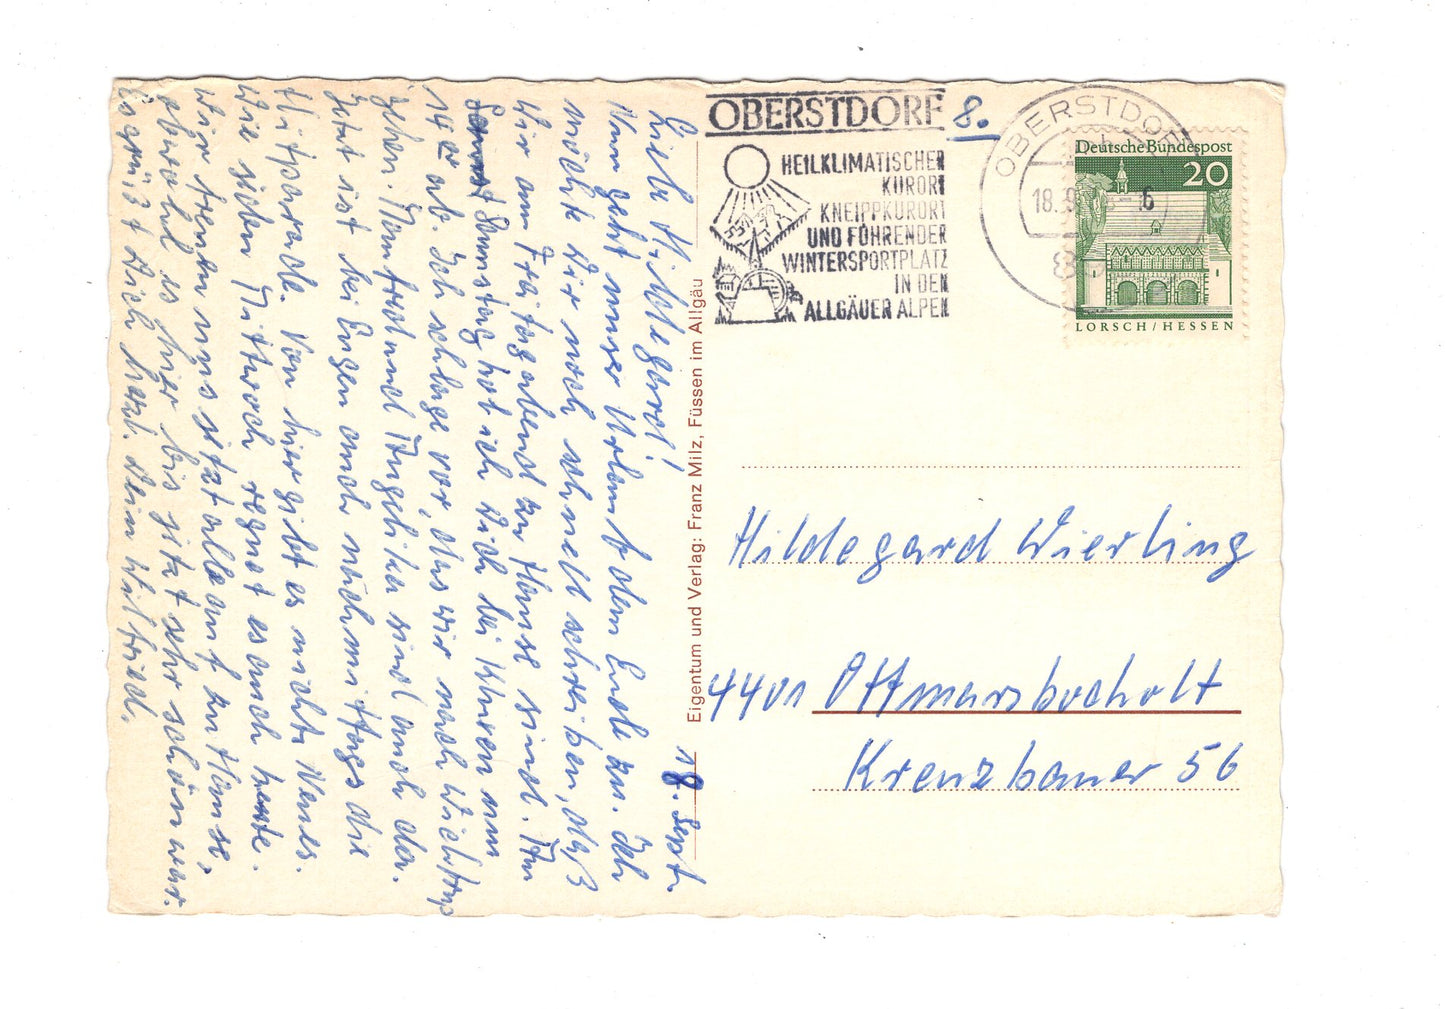 18. Sept.
Liebe Hildegard!
Nun geht unser Urlaub dem Ende zu. Ich
möchte Dir noch schnell schreiben, daß
wir am Freitagabend zu Hause sind. Am
Samstag hol ich Dich bei Euren um
14 ab. Ich schlage vor, das wir nach
gehen. Manfred und Angelika sind auch da.
Jetzt ist bei Engen auch nachmittags die
Hitparade. Von hier gibt es nichts Neues.
Wie jeden Mittwoch regnet es auch heute.
Wir freuen uns jetzt alle auf zu Hause,
obwohl es hier bis jetzt sehr schön war.
Es grüßt Dich herzl. Dein Wilfried.
Eigentum und Verlag: Franz Milz, Füssen im Allgäu
OBERSTDORF
8.
HEILKLIMATISCHER
KURORT
KNEIPPKURORT
UND FÜHRENDER
WINTERSPORTPLATZ
IN DEN
ALLGÄUER ALPEN
OBERSTDORF
18.9.
Deutsche Bundespost
20
LORSCH/HESSEN
Hildegard Wierling
4401 Ottmarsbocholt
Kreuzbauer 56